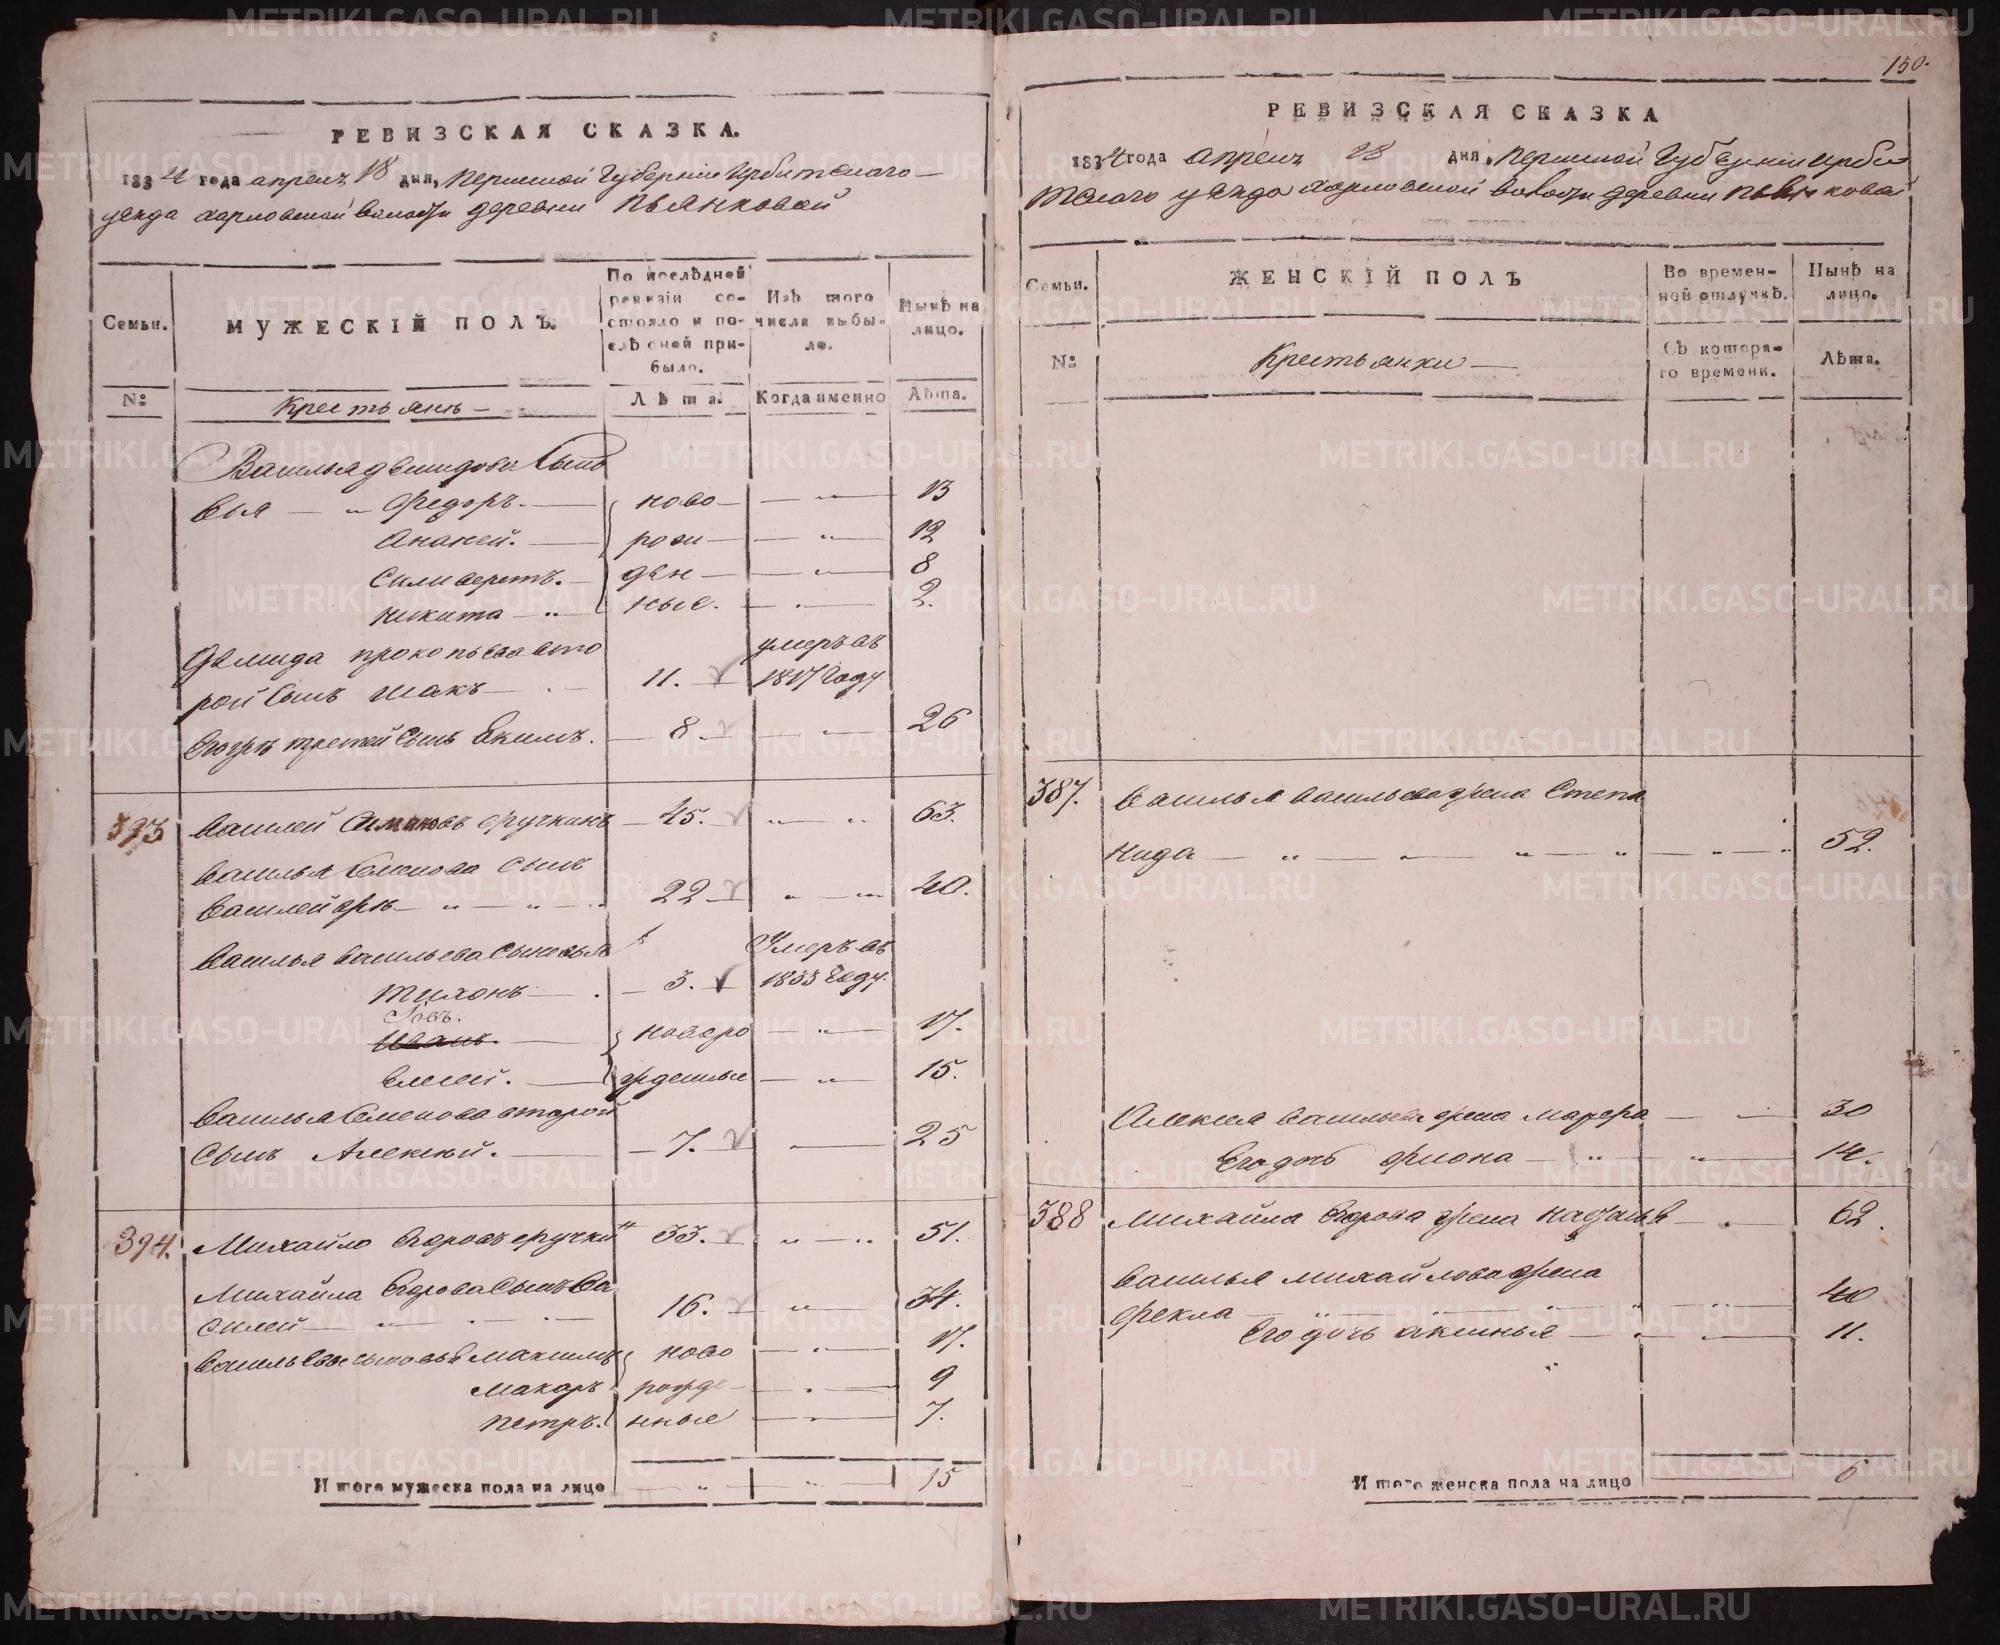 РЕВИЗСКАЯ СКАЗКА.
1834 года апрель 18 дня, Пермской Губернии Ирбитскаго
уезда харловской волости деревни Пьянковой
Семьи.
МУЖЕСКІЙ ПОЛЪ.
По послѣдней ревизіи состояло и послѣ оной прибыло.
Изъ того числа выбыло.
Нынѣ на лицо.
№
Крестьяне
Лѣта.
Когда именно
Лѣта.
Василья демидова Сыно
вья — „ Федоръ. ново 13
Ананей. рож 12
Силиверстъ. ден 8
Никита ные. 2.
Демида прокопьева вто умеръ въ
рой Сынъ Исакъ 11. 1817 Году
Егоръ третей Сынъ Екимъ. 8. 26
393 Василей Семеновъ Ручкинъ 45. 63.
Василья Семенова Сынъ
Василей же 22 40.
Василья Васильева Сыновья Умеръ въ
Тихонъ 3. 1833 Году.
Іовъ.
Иванъ. новоро 17.
Елисей. жденные 15.
Василья Семенова второй
Сынъ Алексей. 7. 25
394. Михайло Егоровъ Ручкинъ 33. 51.
Михайла Егорова Сынъ Ва
силей 16. 34.
Васильевы сыновья Максимъ ново 17.
Макаръ рожде 9
Петръ. нные 7.
Итого мужеска пола на лицо 15
150.
РЕВИЗСКАЯ СКАЗКА
1834 года апрель 18 дня, Пермской Губернии Ирби
тскаго уезда харловской волости деревни Пьянковой
Семьи.
ЖЕНСКІЙ ПОЛЪ
Во временной отлучкѣ.
Нынѣ на лицо.
№
Крестьянки
Съ котораго времени.
Лѣта.
387. Василья Васильева жена Степа
нида 52.
Алексея Васильева жена Марфа 30
Его дочь Фиона 14.
388 Михайла Егорова жена Наталья 62.
Василья Михайлова жена
Фекла 40
Его дочь Аксинья 11.
Итого женска пола на лицо 6
METRIKI.GASO-URAL.RU